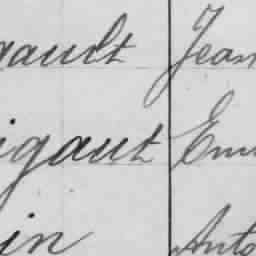 gault Jean
igaut Em
in Anto